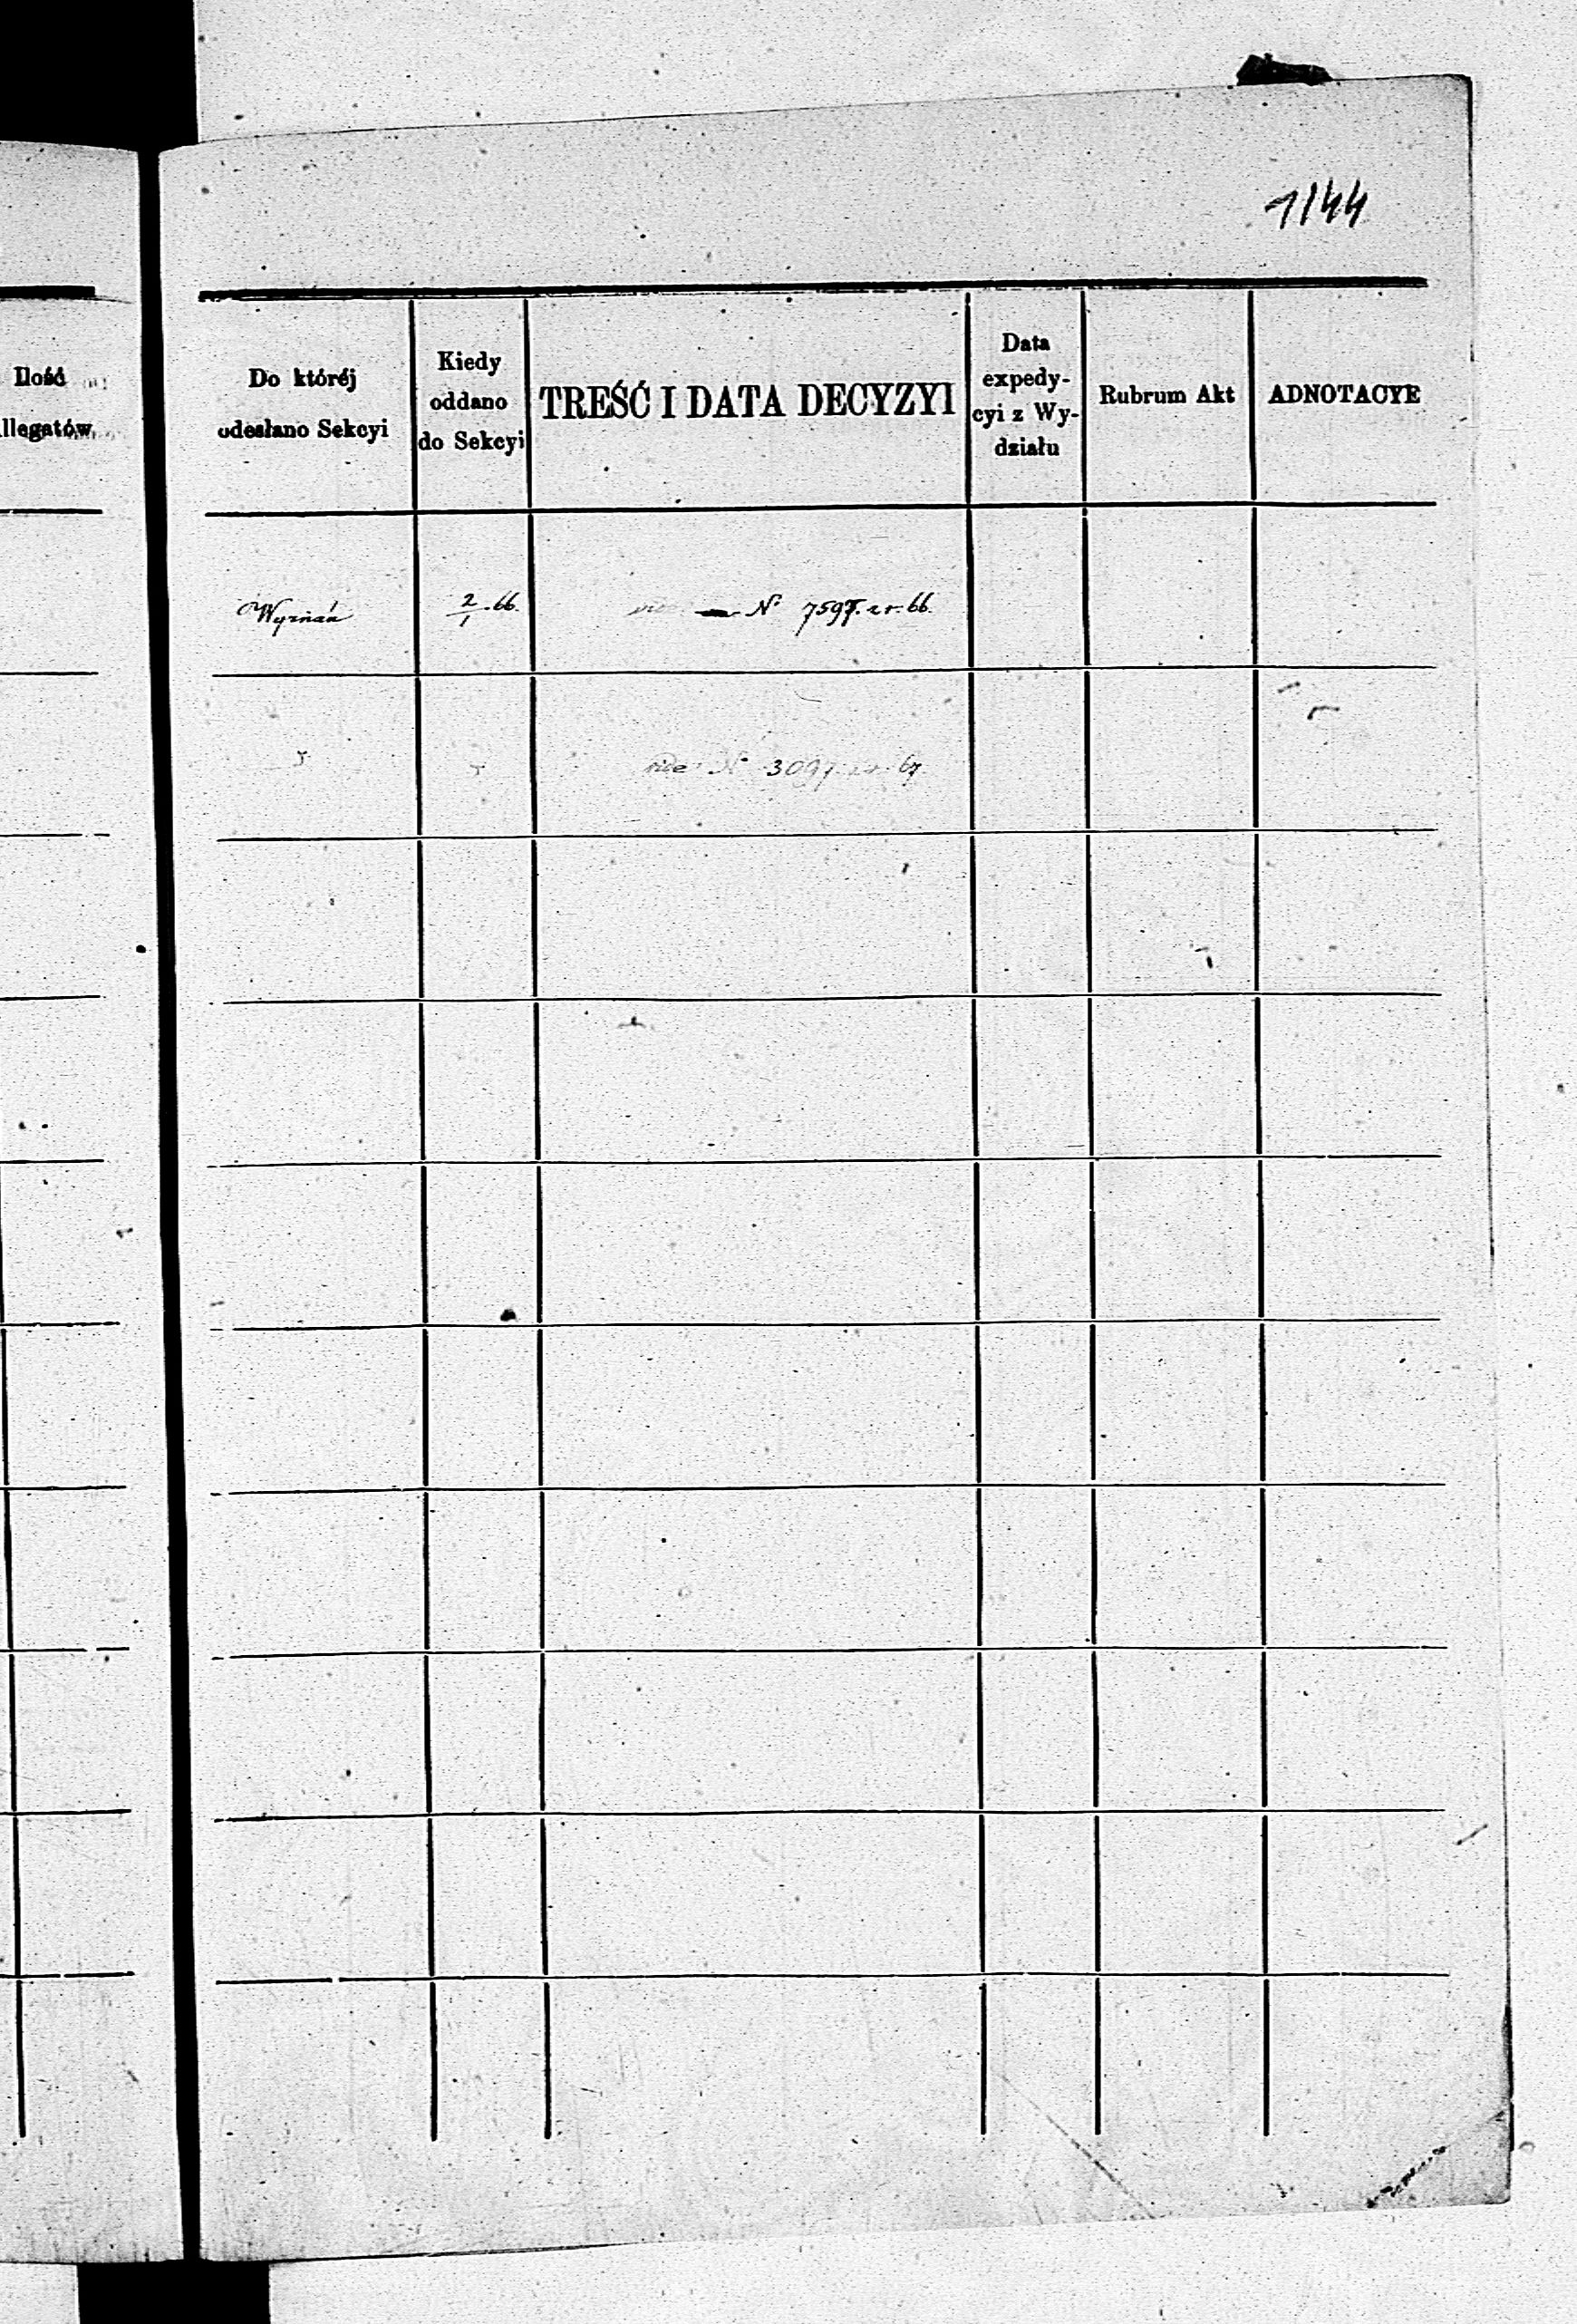 1144
Ilość
llegatów
Do któréj
odesłano Sekcyi
Kiedy
oddano
do Sekcyi
TREŚĆ I DATA DECYZYI
Data
expedy-
cyi z Wy-
działu
Rubrum Akt
ADNOTACYE
Wyznań
2/1 66.
N° 7597. z r. 66.
vide N° 3091 z r. 67